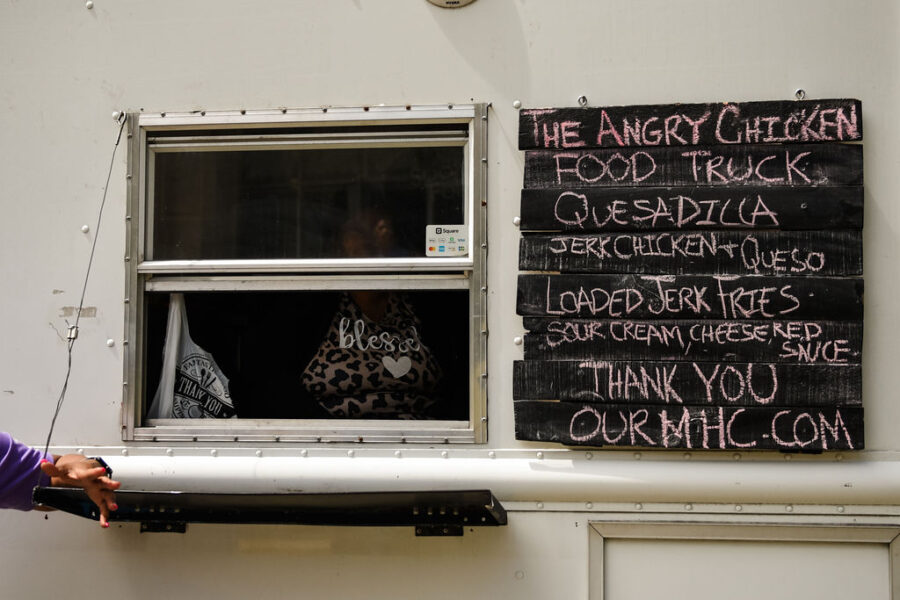 THE ANGRY CHICKEN
FOOD TRUCK
QUESADILLA
JERK CHICKEN + QUESO
LOADED JERK FRIES
SOUR CREAM, CHEESE, RED
SAUCE
THANK YOU
OURMHC.COM
Square
VISA
blessed
THANK YOU